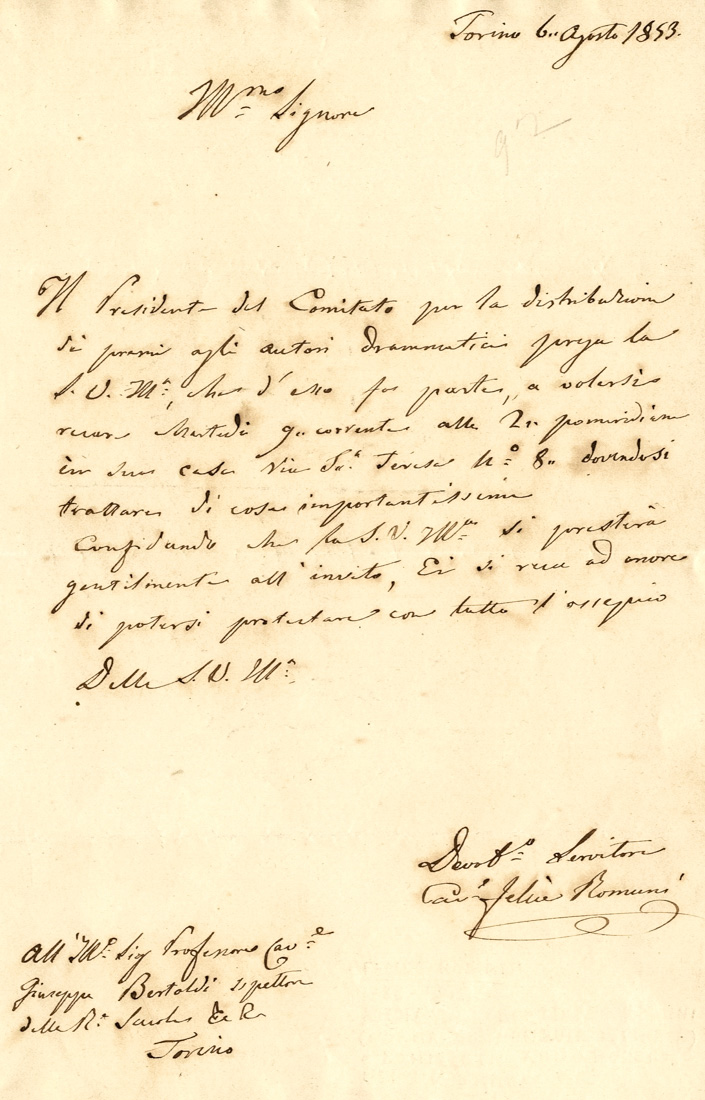 Torino 6.. Agosto 1853.
Ill.mo Signore
92
Il Presidente del Comitato per la distribuzione
di premi agli autori drammatici prega la
S. V. Ill.a, che d'esso fa parte, a volersi
recare Martedì 9.. corrente alle 2.. pomeridiane
in sua casa via S.a Teresa N.o 8.. dovendosi
trattare di cose importantissime
Confidando che la S. V. Ill.ma si presterà
gentilmente all'invito, Ei si reca ad onore
di potersi protestare con tutto l'ossequio
Della S. V. Ill.a
Devot.o Servitore
Cav.e Felice Romani
All'Ill.o Sig Professore Cav.e
Giuseppe Bertoldi Ispettore
delle R.e Scuole &c &c
Torino